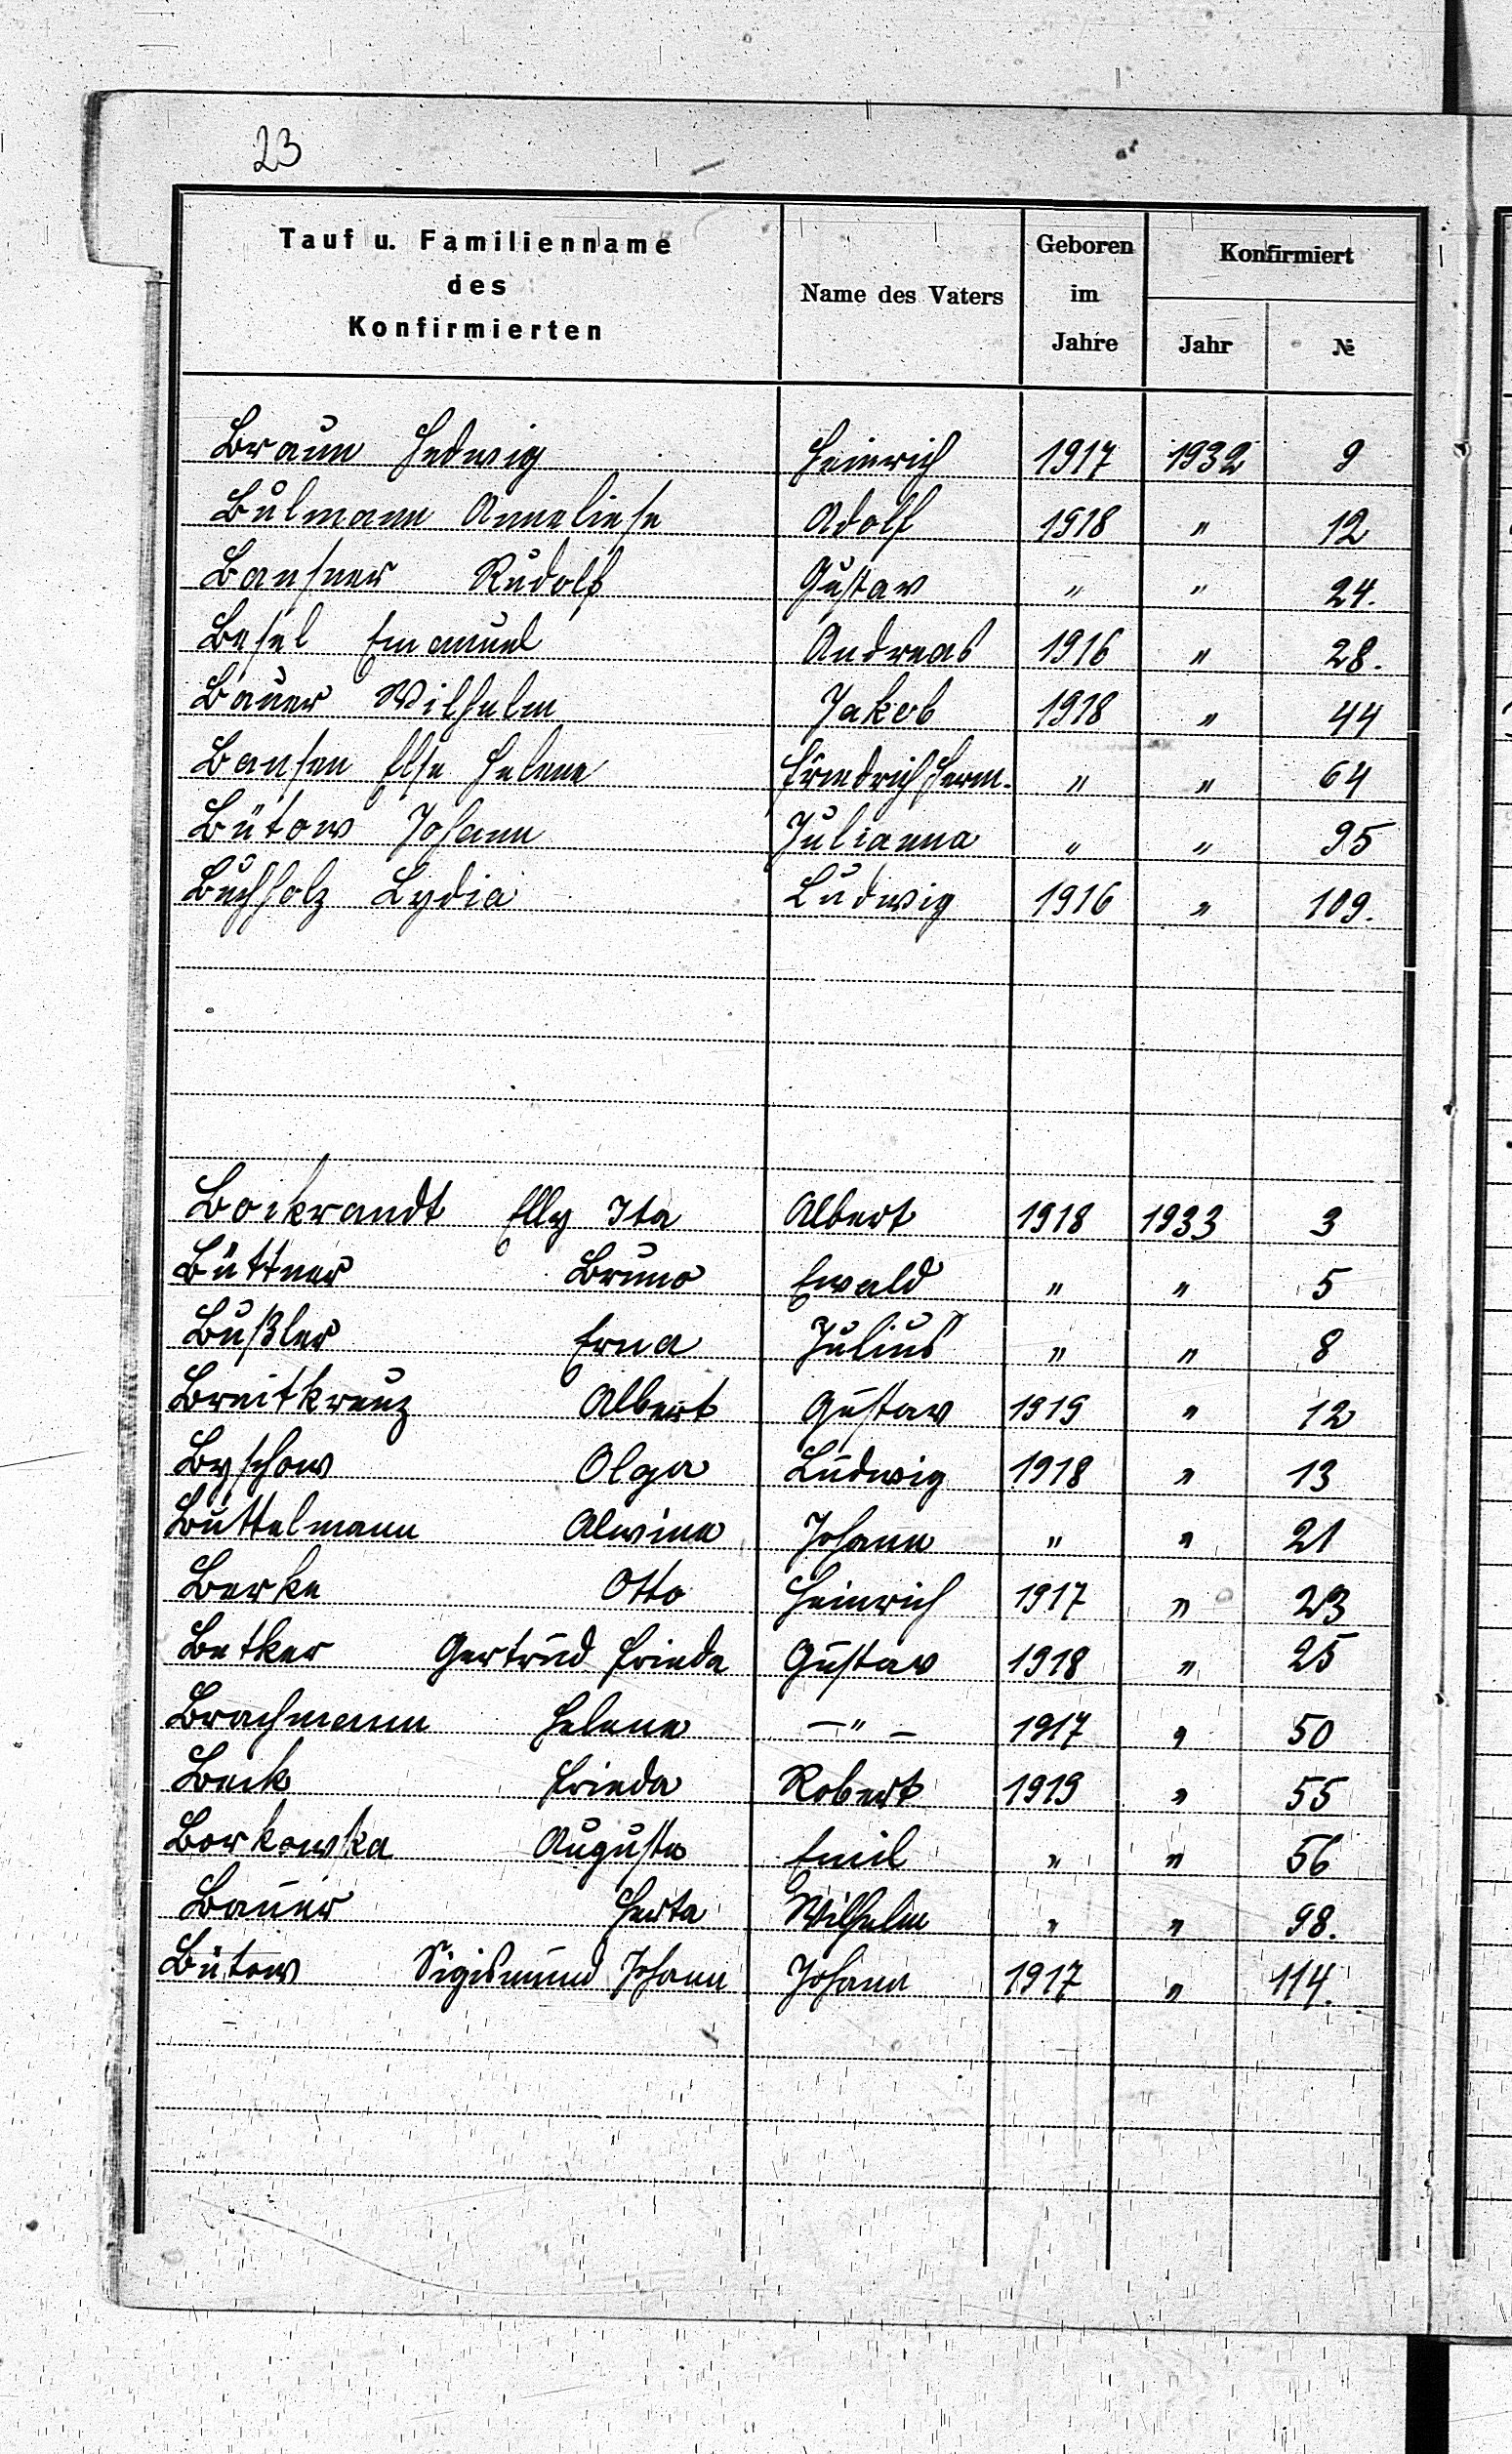 23
Tauf u. Familienname des Konfirmierten Name des Vaters Geboren im Jahre Konfirmiert Jahr №
Braun Hedwig Heinrich 1917 1932 9
Bulmann Anneliese Adolf 1918 " 12
Bansner Rudolf Gustav " " 24.
Besel Emanuel Andreas 1916 " 28.
Bauer Wilhelm Jakob 1918 " 44
Bansen Else Helene Friedrich Herm. " " 64
Bütow Johann Julianna " " 95
Buchholz Lydia Ludwig 1916 " 109.
Bockrandt Elly Ita Albert 1918 1933 3
Büttner Bruno Ewald " " 5
Bußler Erna Julius " " 8
Breitkreuz Albert Gustav 1919 " 12
Byschow Olga Ludwig 1918 " 13
Büttelmann Alwine Johann " " 21
Berke Otto Heinrich 1917 " 23
Betker Gertrud Frieda Gustav 1918 " 25
Brachmann Helene — " — 1917 " 50
Beck Frieda Robert 1919 " 55
Borkowska Auguste Emil " " 56
Bauer Herta Wilhelm " " 98.
Bütow Sigismund Johann Johann 1917 " 114.